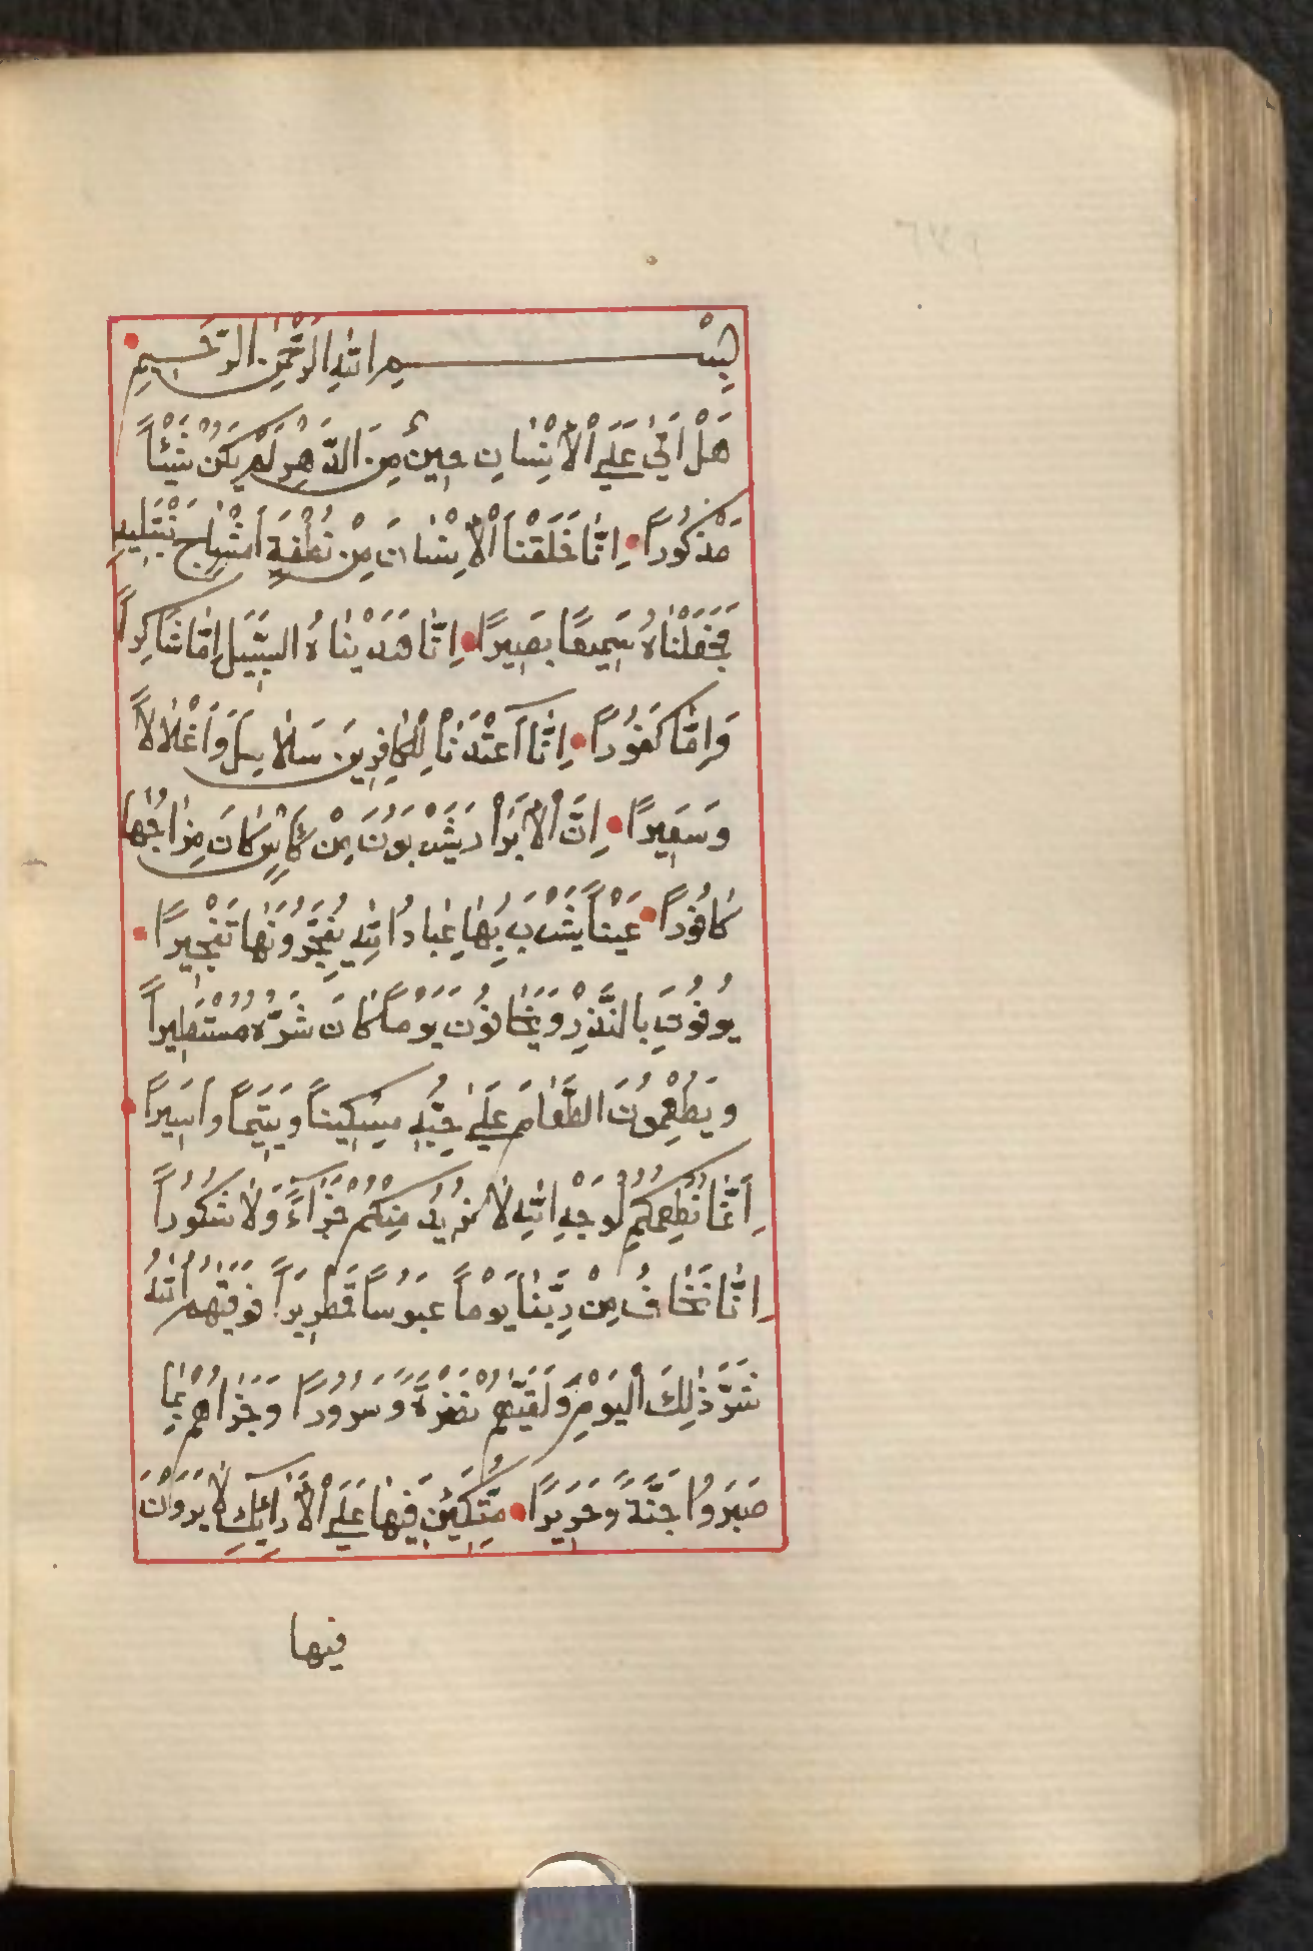 بِسْمِ اللهِ الرَّحْمٰنِ الرَّحِيمِ
هَلْ اَتٰى عَلَى الْاِنْسَانِ حِينٌ مِنَ الدَّهْرِ لَمْ يَكُنْ شَيْئاً
مَذْكُوراً اِنَّا خَلَقْنَا الْاِنْسَانَ مِنْ نُطْفَةٍ اَمْشَاجٍ نَبْتَلِيهِ
فَجَعَلْنَاهُ سَمِيعًا بَصِيرًا اِنَّا هَدَيْنَاهُ السَّبِيلَ اِمَّا شَاكِراً
وَاِمَّا كَفُوراً اِنَّا اَعْتَدْنَا لِلْكَافِرِينَ سَلَاسِلَ وَاَغْلَالاً
وَسَعِيرًا اِنَّ الْاَبْرَارَ يَشْرَبُونَ مِنْ كَاْسٍ كَانَ مِزَاجُهَا
كَافُوراً عَيْناً يَشْرَبُ بِهَا عِبَادُ اللهِ يُفَجِّرُونَهَا تَفْجِيرًا
يُوفُونَ بِالنَّذْرِ وَيَخَافُونَ يَوْماً كَانَ شَرُّهُ مُسْتَطِيراً
وَيُطْعِمُونَ الطَّعَامَ عَلَى حُبِّهِ مِسْكِيناً وَيَتِيماً وَاَسِيراً
اِنَّمَا نُطْعِمُكُمْ لِوَجْهِ اللهِ لَا نُرِيدُ مِنْكُمْ جَزَاءً وَلَا شُكُوراً
اِنَّا نَخَافُ مِنْ رَبِّنَا يَوْماً عَبُوسًا قَمْطَرِيراً فَوَقٰيهُمُ اللهُ
شَرَّ ذٰلِكَ الْيَوْمِ وَلَقّٰيهُمْ نَضْرَةً وَسُرُورًا وَجَزَاهُمْ بِمَا
صَبَرُوا جَنَّةً وَحَرِيرًا مُتَّكِئِينَ فِيهَا عَلَى الْاَرَائِكِ لَا يَرَوْنَ
فيها